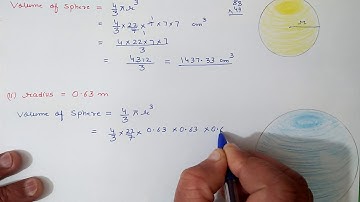 Volume of Sphere = 4/3 π r³
= 4/3 × 22/7 × 7 × 7 × 7 cm³
= 4 × 22 × 7 × 7 / 3
= 4312/3 = 1437.33 cm³
(ii) radius = 0.63 m
Volume of Sphere = 4/3 π r³
= 4/3 × 22/7 × 0.63 × 0.63 × 0.6